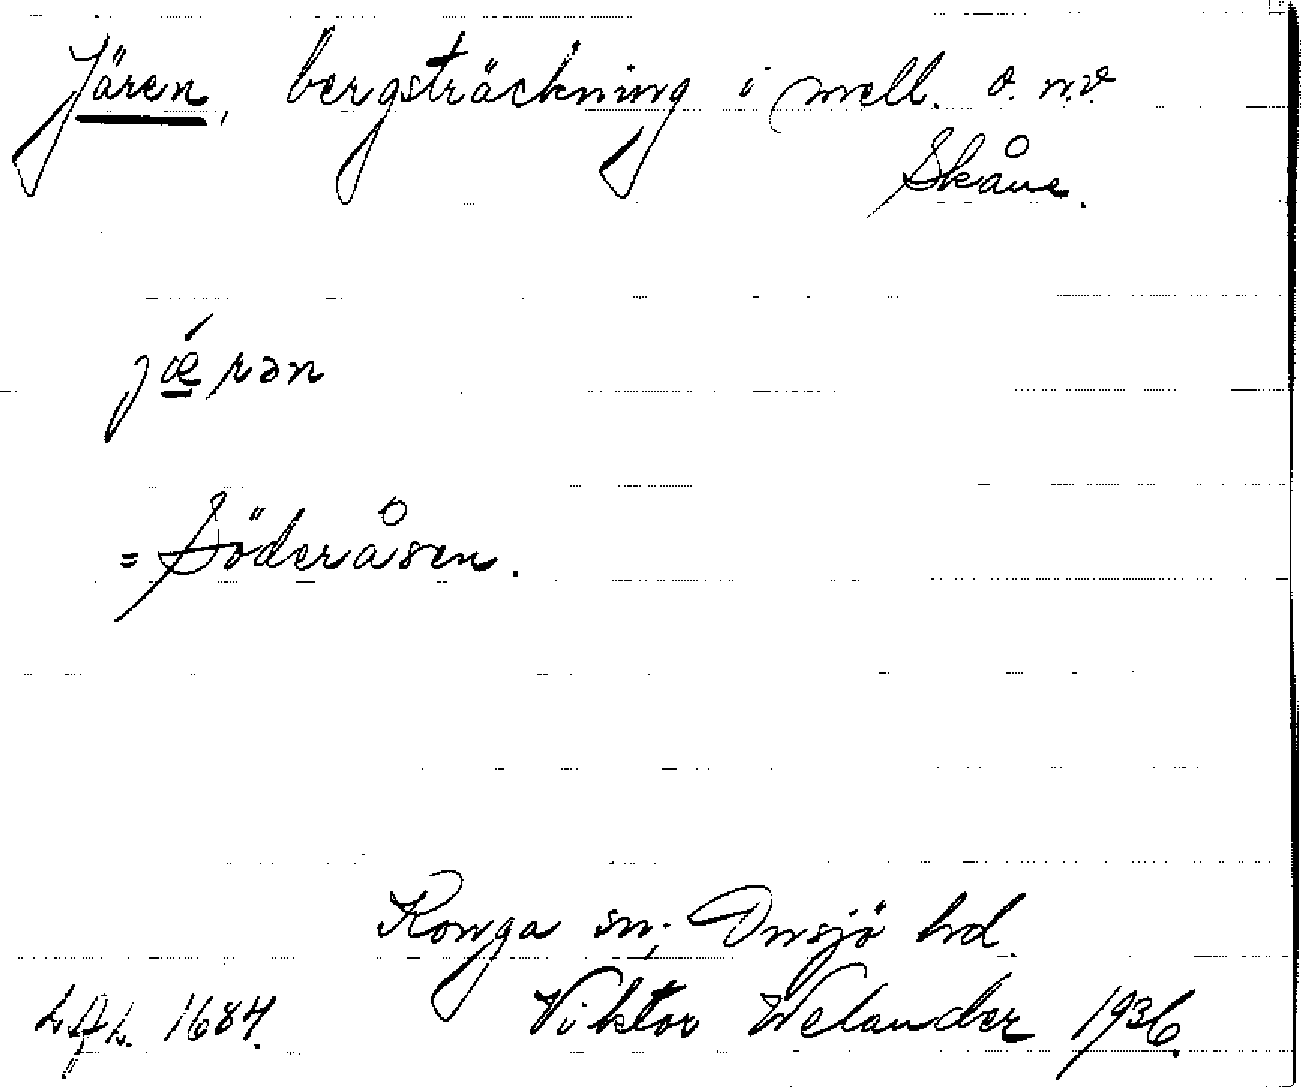 Jären, bergsträckning i mell. o. n.v.
Skåne.
jǽrən
= Söderåsen.
Konga sn; Onsjö hd.
1684. Viktor Welander 1936.